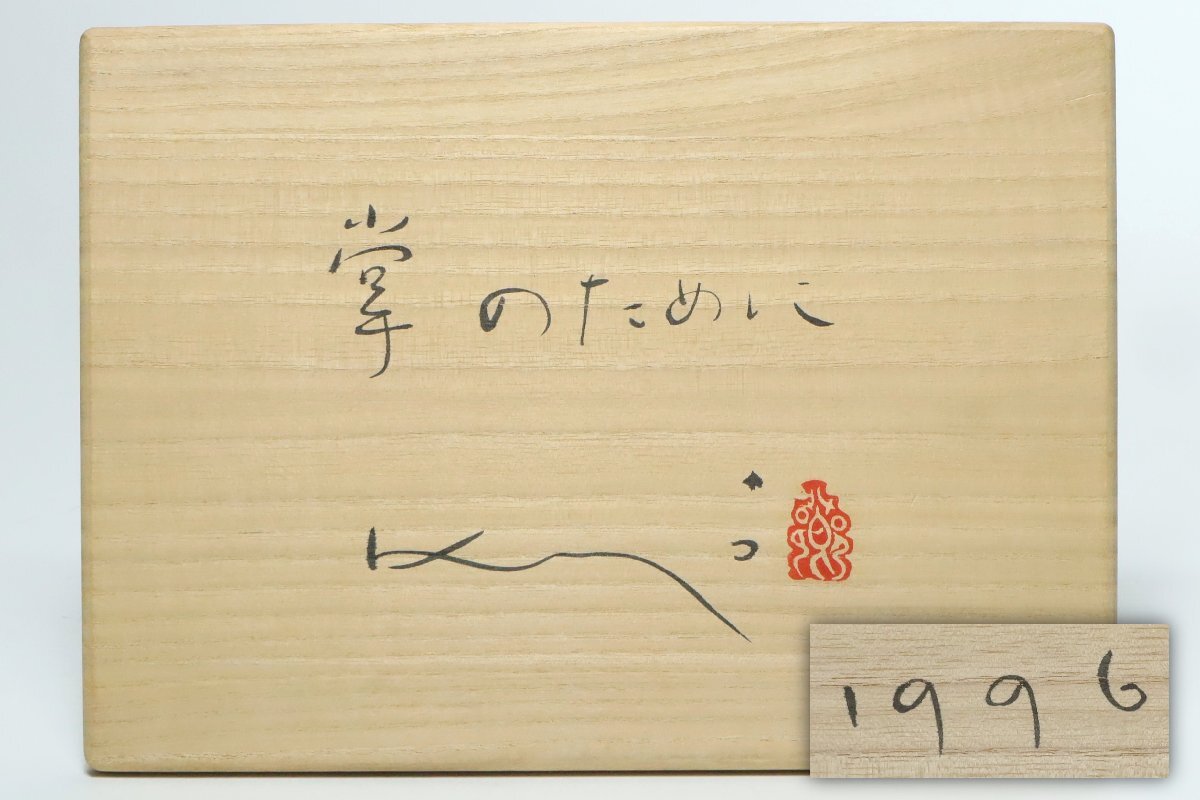 掌のために
1996